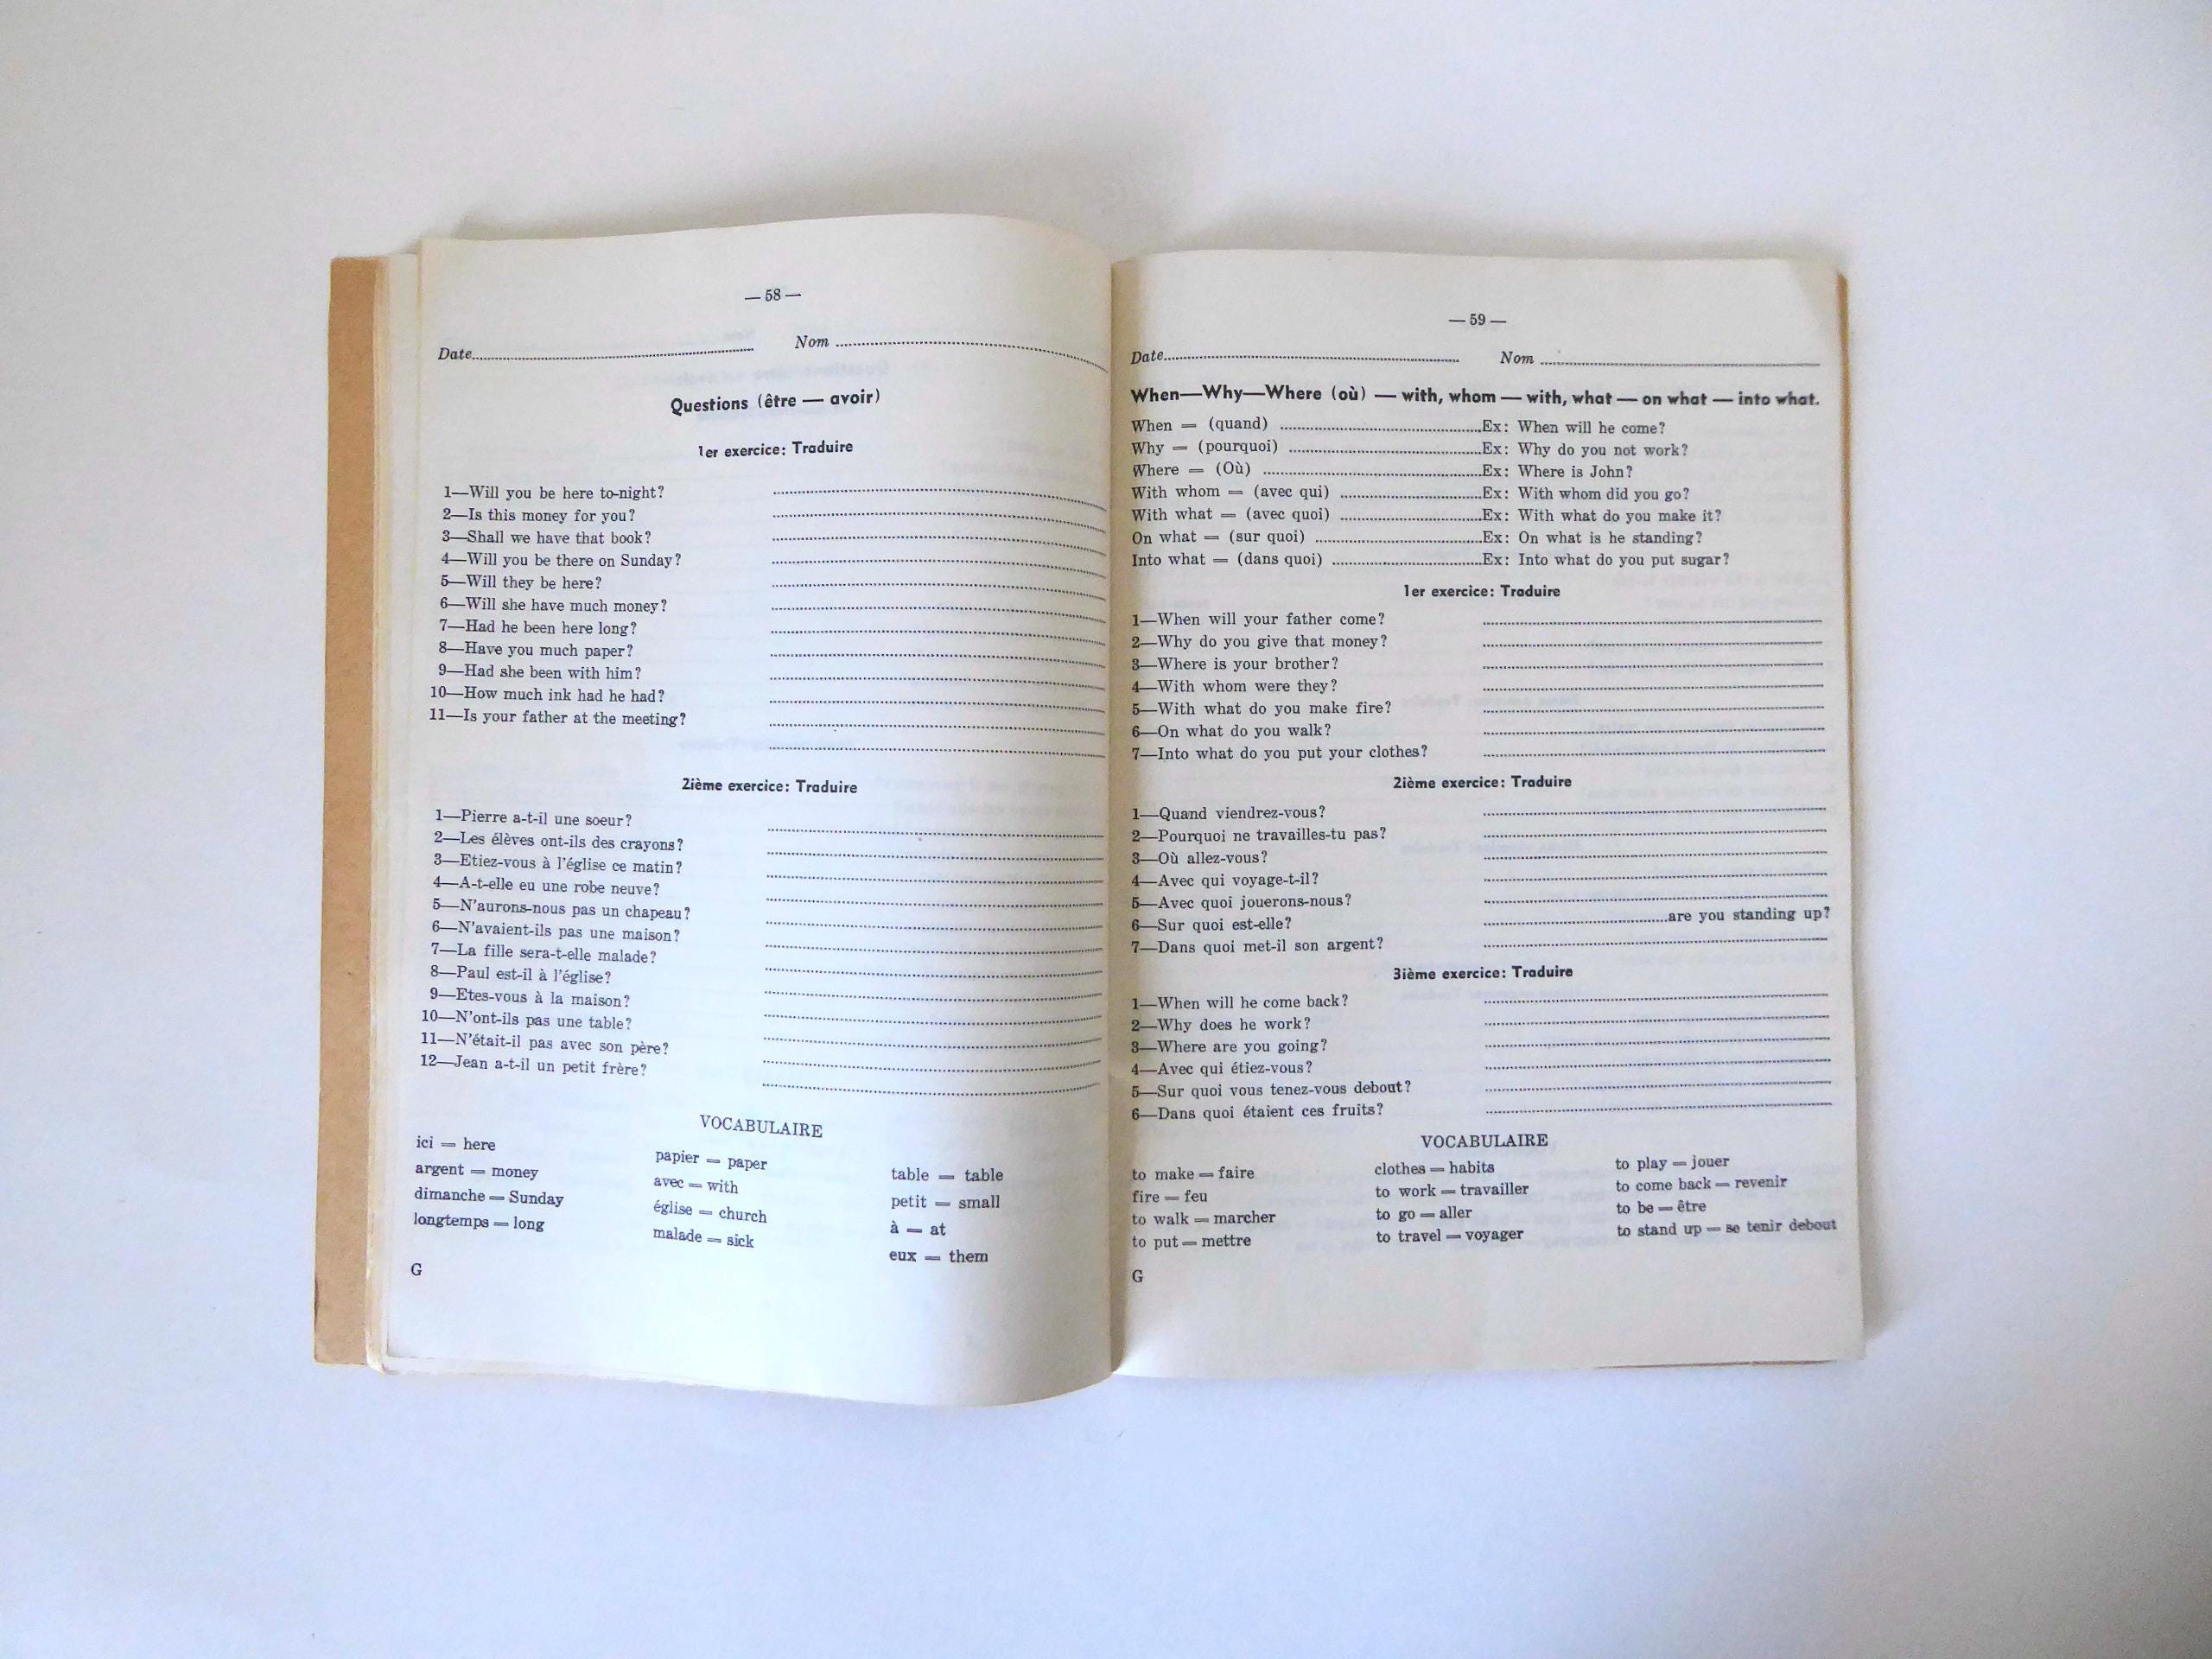 — 58 —
Date.......... Nom ..........
Questions (être — avoir)
1er exercice: Traduire
1—Will you be here to-night? ..........
2—Is this money for you? ..........
3—Shall we have that book? ..........
4—Will you be there on Sunday? ..........
5—Will they be here? ..........
6—Will she have much money? ..........
7—Had he been here long? ..........
8—Have you much paper? ..........
9—Had she been with him? ..........
10—How much ink had he had? ..........
11—Is your father at the meeting? ..........
2ième exercice: Traduire
1—Pierre a-t-il une soeur? ..........
2—Les élèves ont-ils des crayons? ..........
3—Etiez-vous à l'église ce matin? ..........
4—A-t-elle eu une robe neuve? ..........
5—N'aurons-nous pas un chapeau? ..........
6—N'avaient-ils pas une maison? ..........
7—La fille sera-t-elle malade? ..........
8—Paul est-il à l'église? ..........
9—Etes-vous à la maison? ..........
10—N'ont-ils pas une table? ..........
11—N'était-il pas avec son père? ..........
12—Jean a-t-il un petit frère? ..........
VOCABULAIRE
ici = here
argent = money
dimanche = Sunday
longtemps = long
papier = paper
avec = with
église = church
malade = sick
table = table
petit = small
à = at
eux = them
G
— 59 —
Date.......... Nom ..........
When—Why—Where (où) — with, whom — with, what — on what — into what.
When = (quand) ..........Ex: When will he come?
Why = (pourquoi) ..........Ex: Why do you not work?
Where = (Où) ..........Ex: Where is John?
With whom = (avec qui) ..........Ex: With whom did you go?
With what = (avec quoi) ..........Ex: With what do you make it?
On what = (sur quoi) ..........Ex: On what is he standing?
Into what = (dans quoi) ..........Ex: Into what do you put sugar?
1er exercice: Traduire
1—When will your father come? ..........
2—Why do you give that money? ..........
3—Where is your brother? ..........
4—With whom were they? ..........
5—With what do you make fire? ..........
6—On what do you walk? ..........
7—Into what do you put your clothes? ..........
2ième exercice: Traduire
1—Quand viendrez-vous? ..........
2—Pourquoi ne travailles-tu pas? ..........
3—Où allez-vous? ..........
4—Avec qui voyage-t-il? ..........
5—Avec quoi jouerons-nous? ..........
6—Sur quoi est-elle? ..........are you standing up?
7—Dans quoi met-il son argent? ..........
3ième exercice: Traduire
1—When will he come back? ..........
2—Why does he work? ..........
3—Where are you going? ..........
4—Avec qui étiez-vous? ..........
5—Sur quoi vous tenez-vous debout? ..........
6—Dans quoi étaient ces fruits? ..........
VOCABULAIRE
to make = faire
fire = feu
to walk = marcher
to put = mettre
clothes = habits
to work = travailler
to go = aller
to travel = voyager
to play = jouer
to come back = revenir
to be = être
to stand up = se tenir debout
G